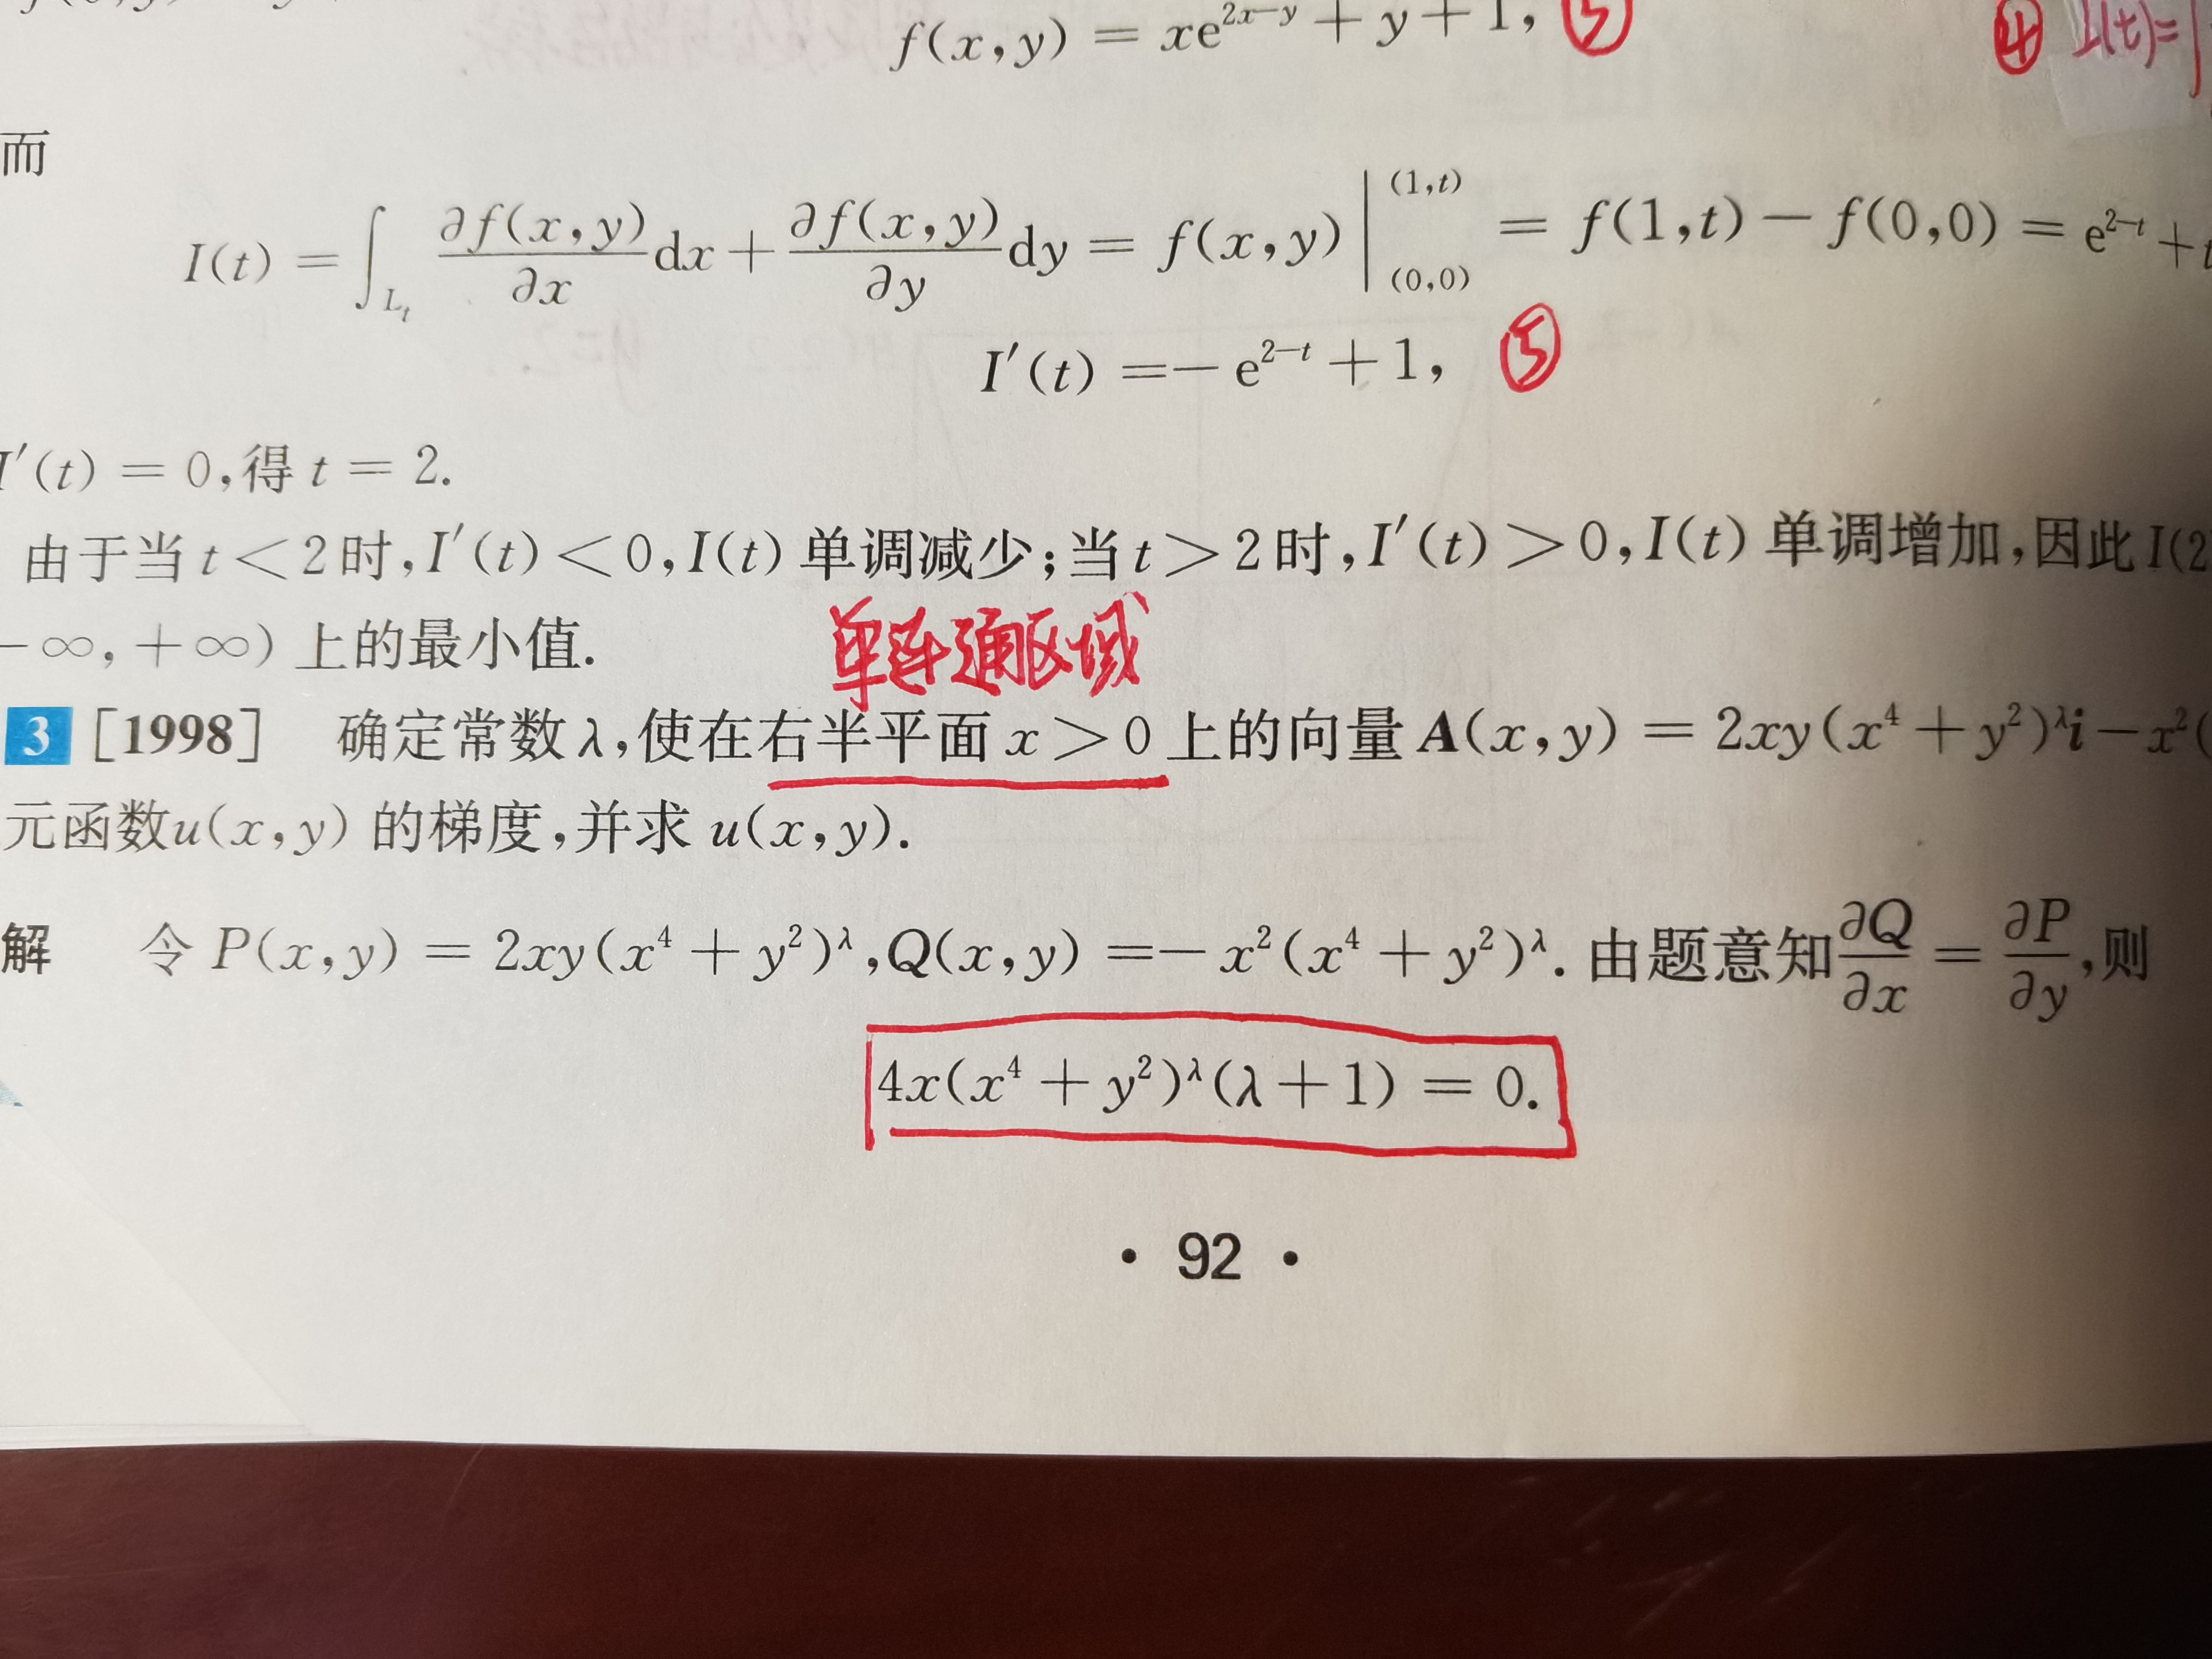 f(x,y) = xe^{2x-y} + y + 1, ⑤ ④ I(t)=
而
I(t) = ∫_{L_t} ∂f(x,y)/∂x dx + ∂f(x,y)/∂y dy = f(x,y) |_{(0,0)}^{(1,t)} = f(1,t) − f(0,0) = e^{2−t} + t
I′(t) = − e^{2−t} + 1, ⑤
I′(t) = 0,得 t = 2.
由于当 t < 2 时,I′(t) < 0,I(t) 单调减少;当 t > 2 时,I′(t) > 0,I(t) 单调增加,因此 I(2
−∞,+∞) 上的最小值.
单连通区域
3 [1998] 确定常数 λ,使在右半平面 x > 0 上的向量 A(x,y) = 2xy(x⁴ + y²)^λ i − x²(
元函数u(x,y) 的梯度,并求 u(x,y).
解 令 P(x,y) = 2xy(x⁴ + y²)^λ,Q(x,y) = − x²(x⁴ + y²)^λ. 由题意知 ∂Q/∂x = ∂P/∂y,则
4x(x⁴ + y²)^λ(λ + 1) = 0.
· 92 ·